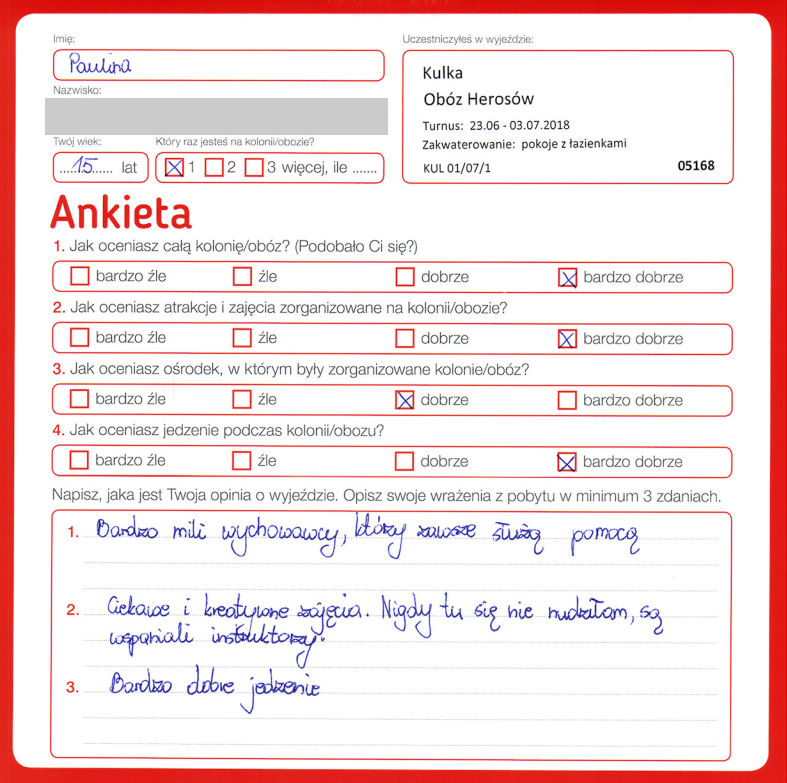 Imię:
Paulina
Nazwisko:
Twój wiek:
15 lat
Który raz jesteś na kolonii/obozie?
1 2 3 więcej, ile .......
Uczestniczyłeś w wyjeździe:
Kulka
Obóz Herosów
Turnus: 23.06 - 03.07.2018
Zakwaterowanie: pokoje z łazienkami
KUL 01/07/1 05168
Ankieta
1. Jak oceniasz całą kolonię/obóz? (Podobało Ci się?)
bardzo źle źle dobrze bardzo dobrze
2. Jak oceniasz atrakcje i zajęcia zorganizowane na kolonii/obozie?
bardzo źle źle dobrze bardzo dobrze
3. Jak oceniasz ośrodek, w którym były zorganizowane kolonie/obóz?
bardzo źle źle dobrze bardzo dobrze
4. Jak oceniasz jedzenie podczas kolonii/obozu?
bardzo źle źle dobrze bardzo dobrze
Napisz, jaka jest Twoja opinia o wyjeździe. Opisz swoje wrażenia z pobytu w minimum 3 zdaniach.
1. Bardzo mili wychowawcy, którzy zawsze służą pomocą
2. Ciekawe i kreatywne zajęcia. Nigdy tu się nie nudziłam, są
wspaniali instruktorzy.
3. Bardzo dobre jedzenie